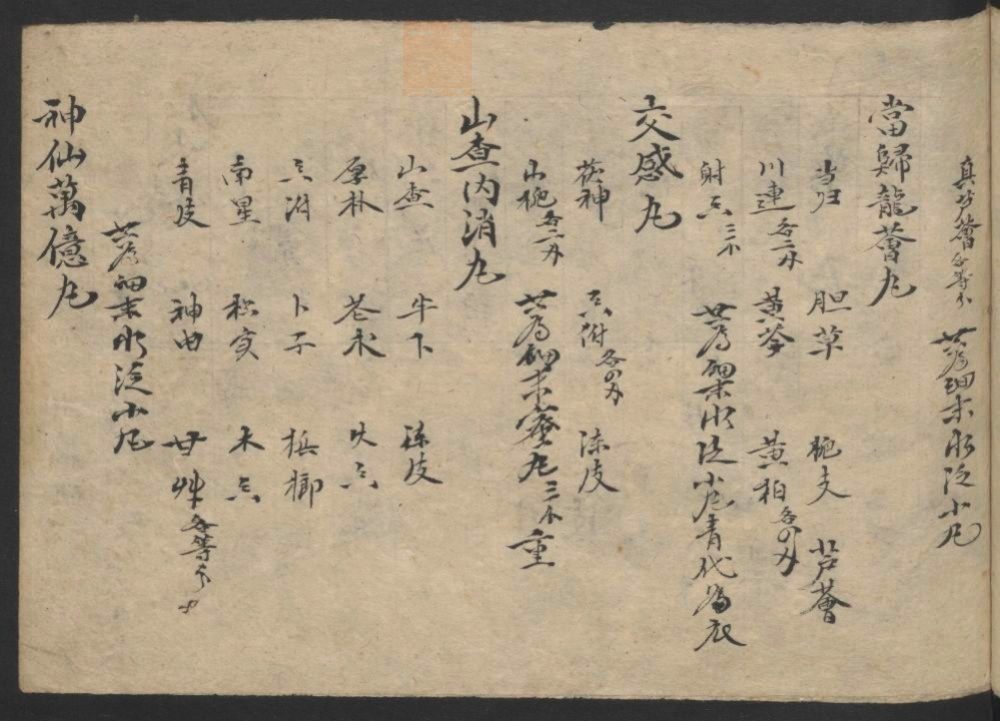 真芦薈各等分 共為細末水泛小丸
當歸龍薈丸
当归 胆草 栀支 芦薈
川連各二分 黄芩 黄柏各四分
射香三分 共為細末水泛小丸青代為衣
交感丸
茯神 香附各四分 陳皮
山栀各二分 共為細末蜜丸三分重
山查内消丸
山查 牛下 陳皮
厚朴 苍术 火香
香附 卜子 槟榔
南星 枳实 木香
青皮 神曲 甘草各等分
共為細末水泛小丸
神仙萬億丸